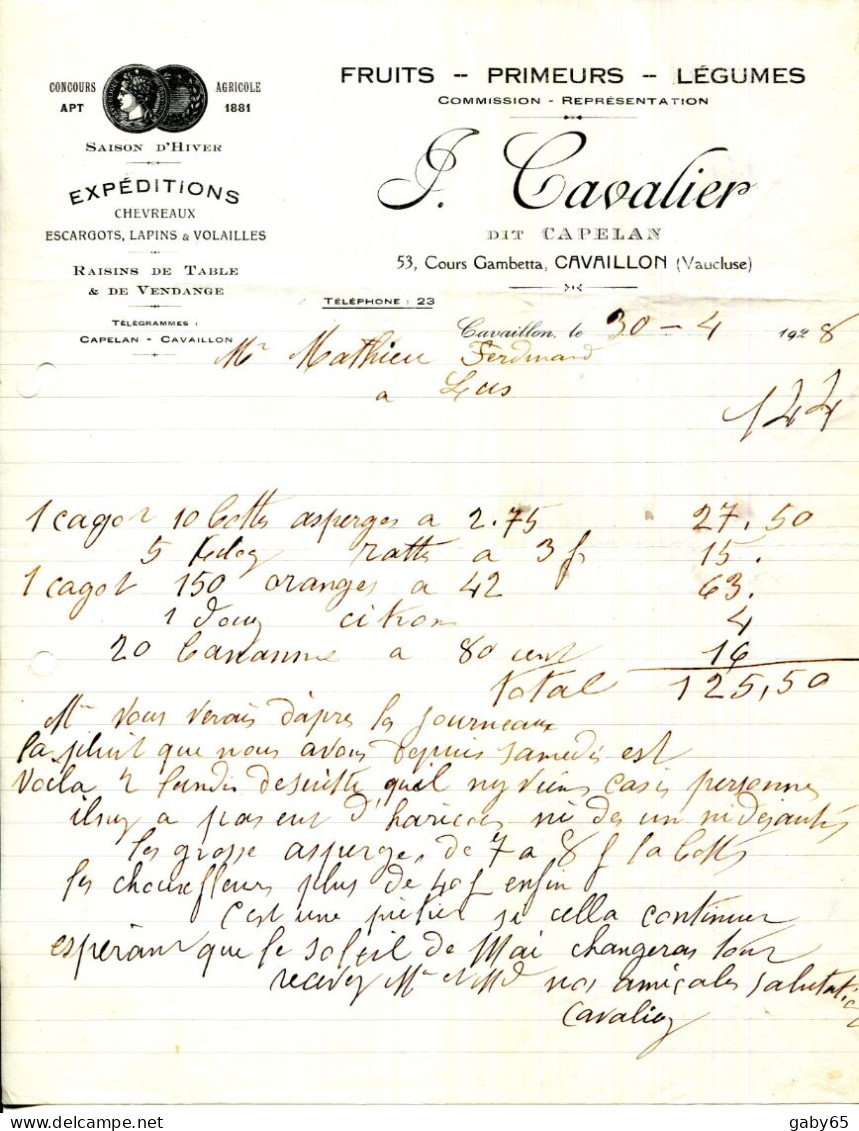 CONCOURS AGRICOLE
APT 1881
SAISON D'HIVER
EXPÉDITIONS
CHEVREAUX
ESCARGOTS, LAPINS & VOLAILLES
RAISINS DE TABLE
& DE VENDANGE
TÉLÉGRAMMES :
CAPELAN - CAVAILLON
FRUITS -- PRIMEURS -- LÉGUMES
COMMISSION - REPRÉSENTATION
J. Cavalier
DIT CAPELAN
53, Cours Gambetta, CAVAILLON (Vaucluse)
TÉLÉPHONE : 23
Cavaillon, le 30 - 4 1928
Mr Mathieu Ferdinand
a Lus
144
1 cagot 10 bottes asperges a 2.75 27,50
5 ratte a 3 f 15.
1 cagot 150 oranges a 42 63.
1 douz citron 4
20 bananne a 80 cent 16
total 125,50
Mr vous verais dapres les journeaux
la pluit que nous avons depuis samedis est
voila 2 lundis desuitte quil ny viens casis personnes
ilny a pas eut d'haricots ni des un ni desautres
les grosse asperge, de 7 a 8 f la botte
les chouxfleurs plus de 40 f enfin
c'est une pitier si cella continuer
espérant que le soleil de Mai changeras tout
recevez Mr nos amicales salutat
Cavalier
gaby65